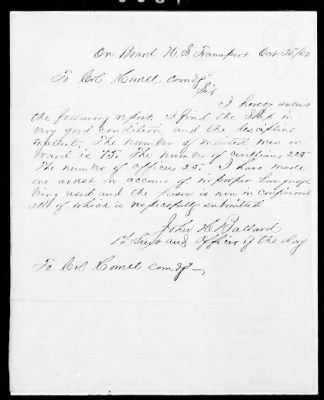 On Board U.S. Transport Oct
To Col Howell comdg
Sir
I hereby submit
the following report, I find the Ship in
very good condition, and the discipline
excellent. The number of enlisted men on
board is 75 The number of civilians 225
The number of officers 25. I have made
one arrest on account of improper language
being used and the prison is now in confinment
all of which is respectfully submitted
John H. Ballard
1st Lieut and Officer of the day
To Col Howell comdg